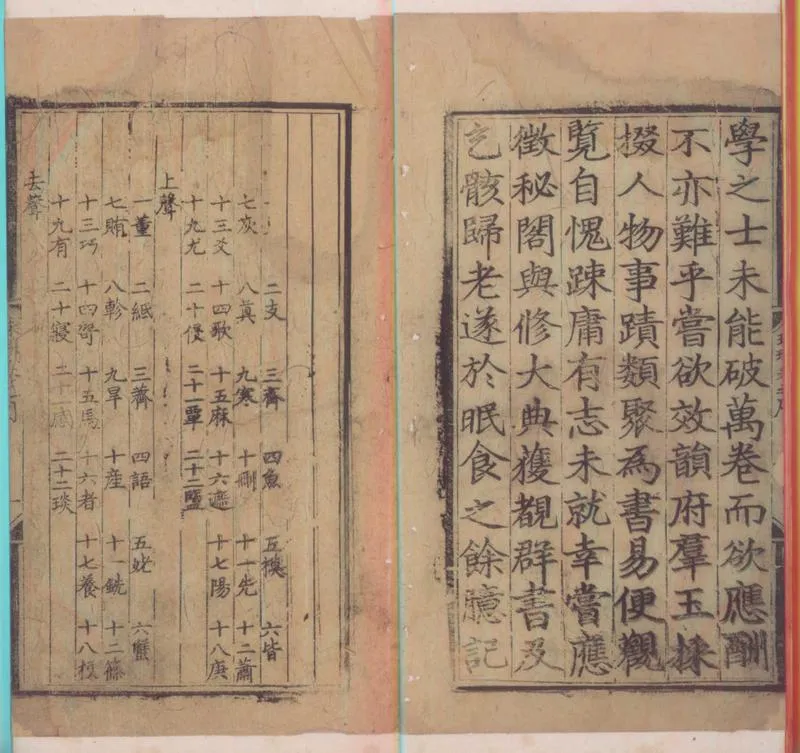 學之士未能破萬卷而欲應酬
不亦難乎嘗欲效韻府羣玉採
掇人物事蹟類聚為書易便觀
覽自愧踈庸有志未就幸嘗應
徵秘閣與修大典獲覩群書及
乞骸歸老遂於眠食之餘臆記
二支 三齊 四魚 五模 六皆
七灰 八真 九寒 十刪 十一先 十二蕭
十三爻 十四歌 十五麻 十六遮 十七陽 十八庚
十九尤 二十侵 二十一覃 二十二鹽
上聲
一董 二紙 三薺 四語 五姥 六蟹
七賄 八軫 九旱 十産 十一銑 十二篠
十三巧 十四哿 十五馬 十六者 十七養 十八梗
十九有 二十寑 二十一感 二十二琰
去聲